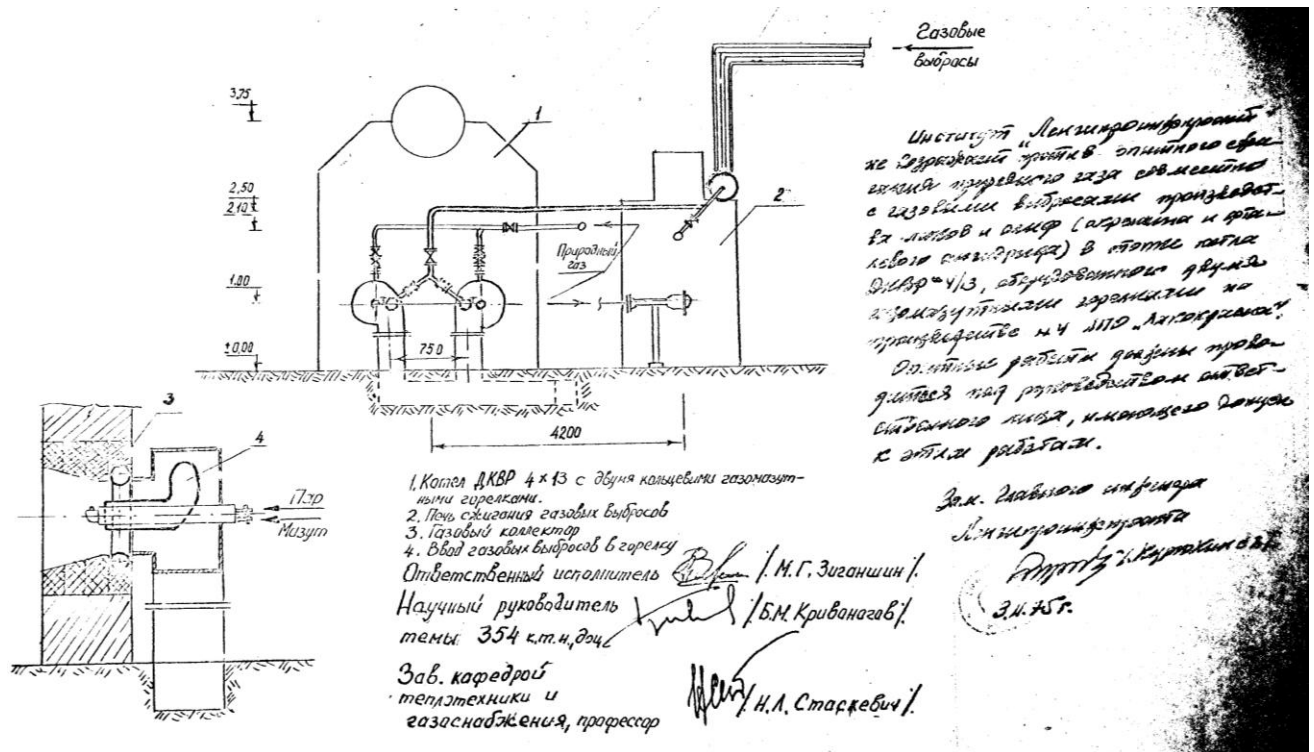 Газовые
выбросы
3,75
1
2,50
2,10
2
Природный
газ
1.00
750
±0,00
3
4200
4
Пар
Мазут
1. Котел ДКВР 4×13 с двумя кольцевыми газомазут-
ными горелками.
2. Печь сжигания газовых выбросов
3. Газовый коллектор
4. Ввод газовых выбросов в горелку
Ответственный исполнитель /М.Г. Зиганшин/.
Научный руководитель
темы 354 к.т.н., доц /Б.М. Кривоногов/.
Зав. кафедрой
теплотехники и
газоснабжения, профессор /Н.Л. Стаскевич/.
Институт "Ленгипроинжпроект"
не возражает против опытного сжи-
гания природного газа совместно
с газовыми выбросами производст-
ва лаков и олиф (акролеина и фта-
левого ангидрида) в топке котла
ДКВР-4/13, оборудованного двумя
газомазутными горелками на
производстве №4 ЛПО "Лакокраска".
Опытные работы должны прово-
диться под руководством ответ-
ственного лица, имеющего допуск
к этим работам.
Зам. главного инженера
Ленгипроинжпроекта
75г.